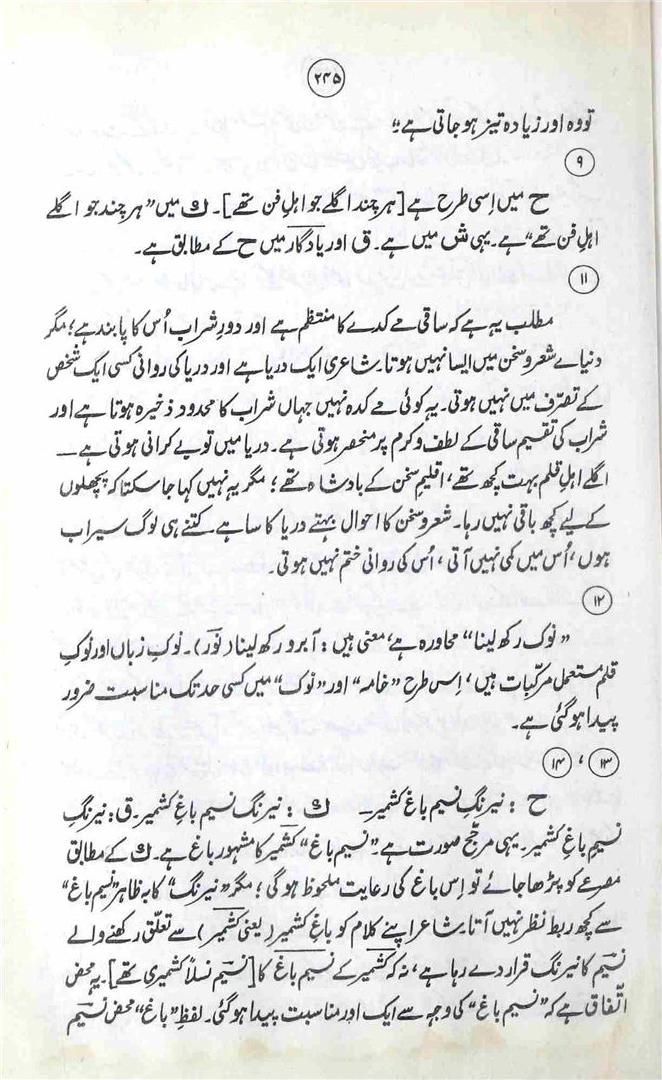 ۲۴۵
تو وہ اور زیادہ تیز ہو جاتی ہے۔"
۹
ح میں اِسی طرح ہے [ہر چند اگلے جو اہلِ فن تھے]۔ ک میں "ہر چند جو اگلے
اہلِ فن تھے" ہے۔ یہی ش میں ہے۔ ق اور یادگار میں ح کے مطابق ہے۔
۱۱
مطلب یہ ہے کہ ساقی مے کدے کا منتظم ہے اور دورِ شراب اُس کا پابند ہے؛ مگر
دنیاے شعر و سخن میں ایسا نہیں ہوتا۔ شاعری ایک دریا ہے اور دریا کی روانی کسی ایک شخص
کے تصرّف میں نہیں ہوتی۔ یہ کوئی مے کدہ نہیں جہاں شراب کا محدود ذخیرہ ہوتا ہے اور
شراب کی تقسیم ساقی کے لطف و کرم پر منحصر ہوتی ہے۔ دریا میں تو بے کرانی ہوتی ہے ــــ
اگلے اہلِ قلم بہت کچھ تھے، اقلیمِ سخن کے بادشاہ تھے؛ مگر یہ نہیں کہا جا سکتا کہ پچھلوں
کے لیے کچھ باقی نہیں رہا۔ شعر و سخن کا احوال بہتے دریا کا سا ہے۔ کتنے ہی لوگ سیراب
ہوں، اُس میں کمی نہیں آتی، اُس کی روانی ختم نہیں ہوتی۔
۱۲
"نوک رکھ لینا" محاورہ ہے، معنی ہیں: آبرو رکھ لینا (نور)۔ نوکِ زباں اور نوکِ
قلم مستعمل مرکّبات ہیں، اِس طرح "خامہ" اور "نوک" میں کسی حد تک مناسبت ضرور
پیدا ہو گئی ہے۔
۱۳ ، ۱۴
ح: نیرنگِ نسیمِ باغِ کشمیر ــــ ک: نیرنگ نسیم باغِ کشمیر۔ ق: نیرنگِ
نسیمِ باغِ کشمیر۔ یہی مرجّح صورت ہے۔ "نسیم باغ" کشمیر کا مشہور باغ ہے۔ ک کے مطابق
مصرعے کو پڑھا جائے تو اِس باغ کی رعایت ملحوظ ہو گی؛ مگر "نیرنگ" کا بہ ظاہر "نسیم باغ"
سے کچھ ربط نظر نہیں آتا۔ شاعر اپنے کلام کو باغِ کشمیر (یعنی کشمیر) سے تعلّق رکھنے والے
نسیم کا نیرنگ قرار دے رہا ہے، نہ کہ کشمیر کے نسیم باغ کا [نسیم نسلاً کشمیری تھے]۔ یہ محض
اتّفاق ہے کہ "نسیم باغ" کی وجہ سے ایک اور مناسبت پیدا ہو گئی۔ لفظِ "باغ" محض نسیم